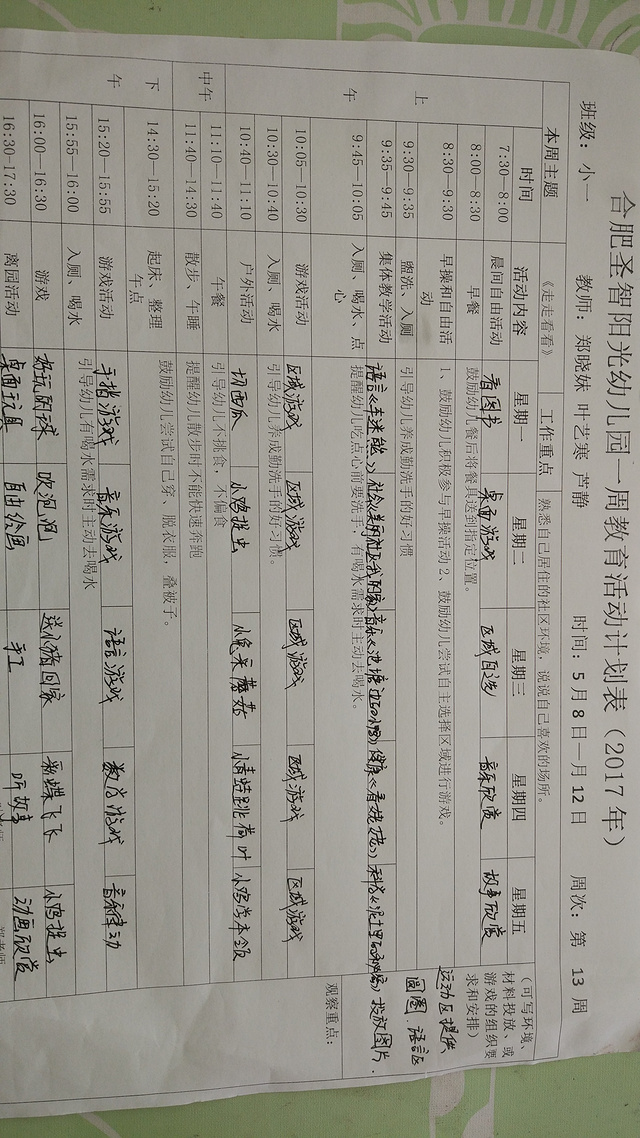 合肥圣智阳光幼儿园一周教育活动计划表（2017 年）
班级：小一 教师：郑晓妹 叶艺寒 芦静 时间：5 月 8 日—月 12 日 周次：第 13 周
本周主题 《走走看看》 工作重点 熟悉自己居住的社区环境，说说自己喜欢的场所。
时间 活动内容 星期一 星期二 星期三 星期四 星期五 （可写环境、材料投放、或游戏的组织要求和安排）
上午
7:30—8:00 晨间自由活动 看图书 桌面游戏 区域自选 音乐欣赏 故事欣赏
8:00—8:30 早餐 鼓励幼儿餐后将餐具送到指定位置。
8:30—9:30 早操和自由活动 1、鼓励幼儿积极参与早操活动 2、鼓励幼儿尝试自主选择区域进行游戏。
运动区提供
圆圈.语言区
投放图片.
9:30—9:35 盥洗、入厕 引导幼儿养成勤洗手的好习惯
9:35—9:45 集体教学活动 语言《 社会《 音乐《池塘边的 健康《 科学《泥土里的秘密》
9:45—10:05 入厕、喝水、点心 提醒幼儿吃点心前要洗手，有喝水需求时主动去喝水。
观察重点：
10:05—10:30 游戏活动 区域游戏 区域游戏 区域游戏 区域游戏 区域游戏
10:30—10:40 入厕、喝水 引导幼儿养成勤洗手的好习惯。
10:40—11:10 户外活动 切西瓜 小鸡捉虫 小兔采蘑菇 小青蛙跳荷叶 小鸡学本领
中午
11:10—11:40 午餐 引导幼儿不挑食，不偏食
11:40—14:30 散步、午睡 提醒幼儿散步时不能快速奔跑
下午
14:30—15:20 起床、整理午点 鼓励幼儿尝试自己穿、脱衣服，叠被子。
15:20—15:55 游戏活动 手指游戏 音乐游戏 语言游戏 数学游戏 音乐律动
15:55—16:00 入厕、喝水 引导幼儿有喝水需求时主动去喝水
16:00—16:30 游戏 好玩的球 吹泡泡 送小猪回家 蝴蝶飞飞 小鸡捉虫
16:30-17:30 离园活动 桌面玩具 自由绘画 手工 听故事 动画欣赏